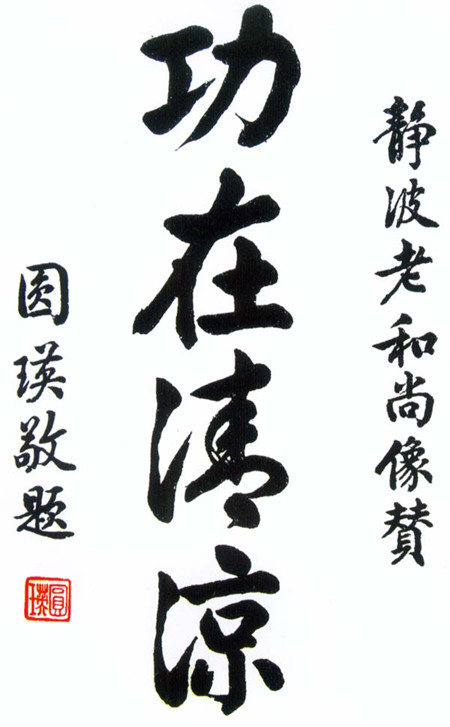 静波老和尚像赞
功在清凉
圆瑛敬题
圓瑛